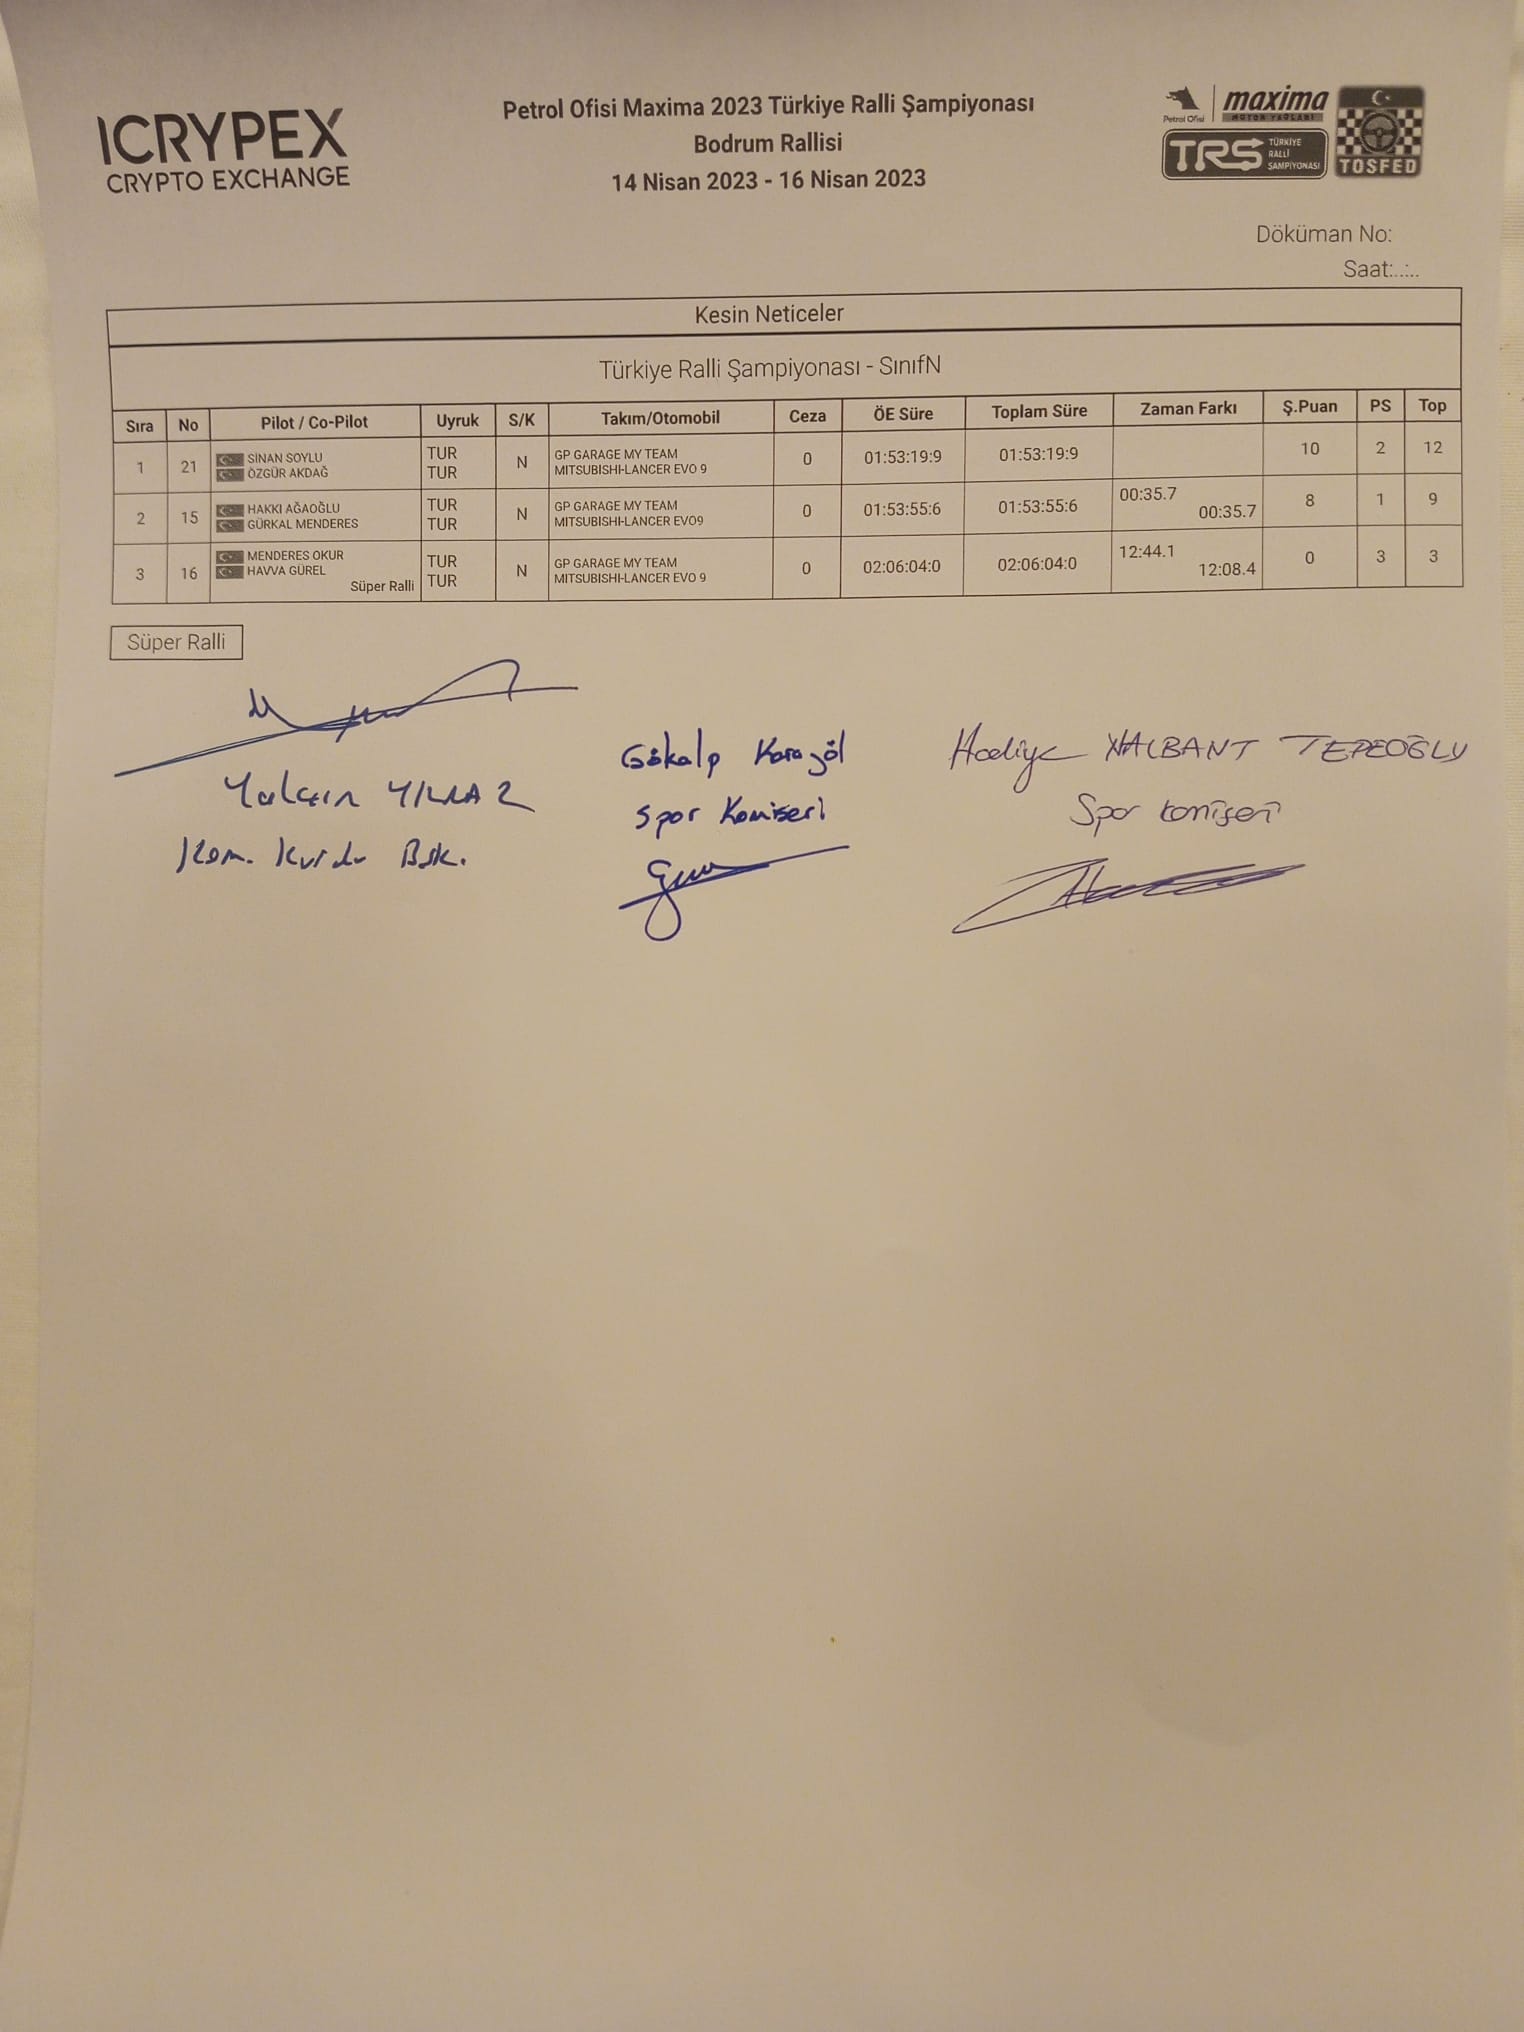 ICRYPEX
CRYPTO EXCHANGE
Petrol Ofisi Maxima 2023 Türkiye Ralli Şampiyonası
Bodrum Rallisi
14 Nisan 2023 - 16 Nisan 2023
Petrol Ofisi
maxima
MOTOR YAĞLARI
TRS TÜRKİYE RALLİ ŞAMPİYONASI
TOSFED
Döküman No:
Saat:..:..
Kesin Neticeler
Türkiye Ralli Şampiyonası - SınıfN
Sıra No Pilot / Co-Pilot Uyruk S/K Takım/Otomobil Ceza ÖE Süre Toplam Süre Zaman Farkı Ş.Puan PS Top
1 21 SİNAN SOYLU TUR N GP GARAGE MY TEAM 0 01:53:19:9 01:53:19:9 10 2 12
ÖZGÜR AKDAĞ TUR MITSUBISHI-LANCER EVO 9
2 15 HAKKI AĞAOĞLU TUR N GP GARAGE MY TEAM 0 01:53:55:6 01:53:55:6 00:35.7 8 1 9
GÜRKAL MENDERES TUR MITSUBISHI-LANCER EVO9 00:35.7
3 16 MENDERES OKUR TUR N GP GARAGE MY TEAM 0 02:06:04:0 02:06:04:0 12:44.1 0 3 3
HAVVA GÜREL TUR MITSUBISHI-LANCER EVO 9 12:08.4
Süper Ralli
Süper Ralli
Yalçın YILMAZ
Kom. Kurulu Bşk.
Gökalp Karagöl
Spor Komiseri
Hediye NALBANT TEPEOĞLU
Spor komiseri